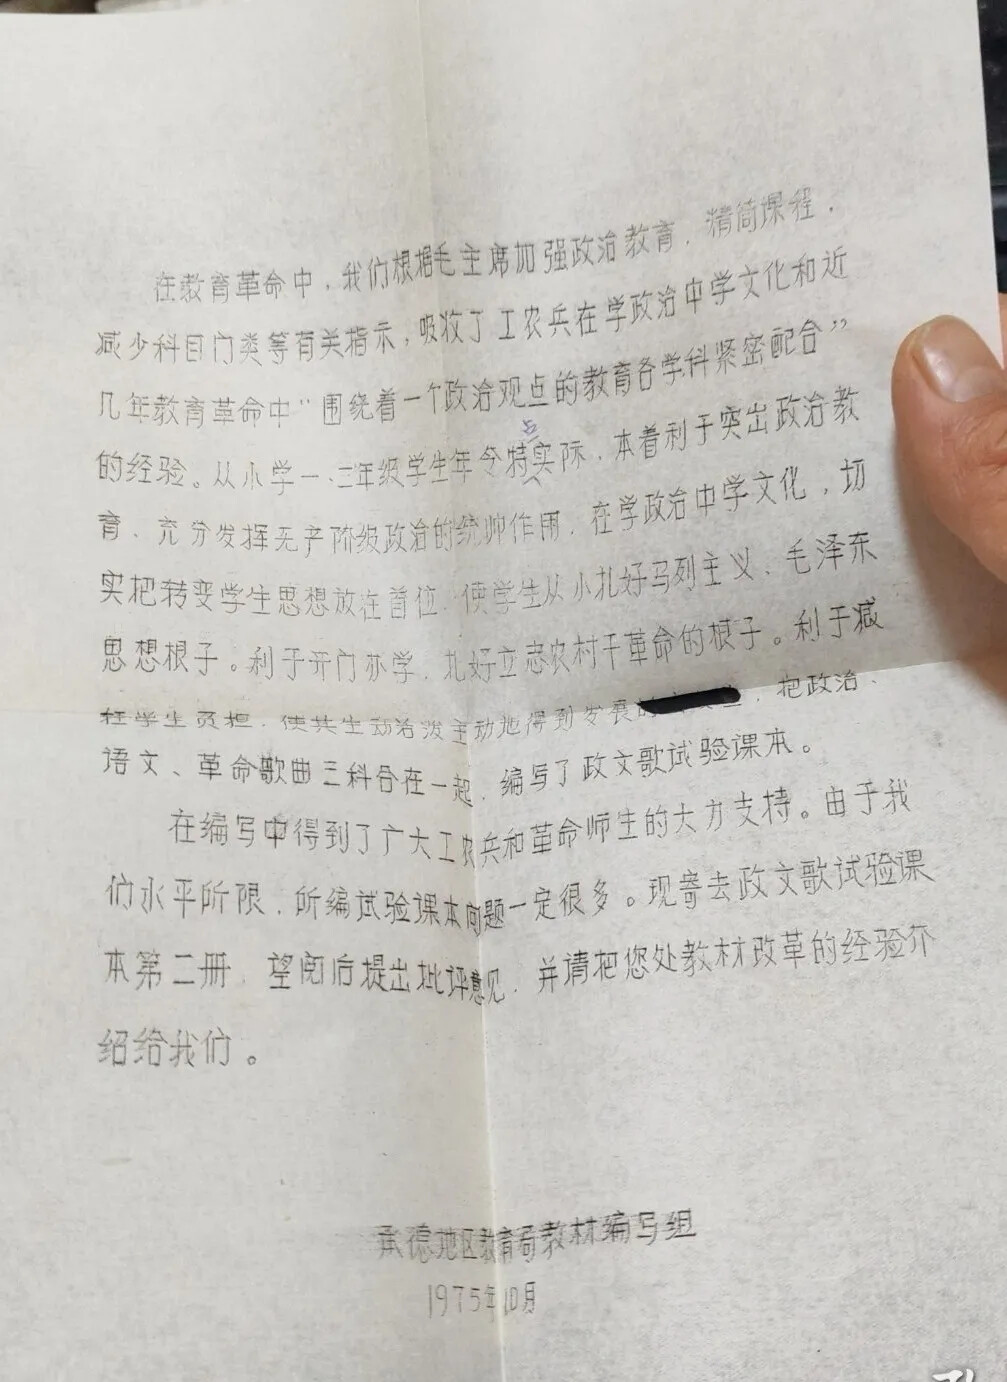 在教育革命中，我们根据毛主席加强政治教育，精简课程，
减少科目门类等有关指示，吸收了工农兵在学政治中学文化和近
几年教育革命中“围绕着一个政治观点的教育各学科紧密配合”
的经验。从小学一、二年级学生年令特点实际，本着利于突出政治教
育，充分发挥无产阶级政治的统帅作用，在学政治中学文化，切
实把转变学生思想放在首位，使学生从小扎好马列主义、毛泽东
思想根子。利于开门办学，扎好立志农村干革命的根子。利于减
轻学生负担，使其生动活泼主动地得到发展的，把政治、
语文、革命歌曲三科合在一起，编写了政文歌试验课本。
在编写中得到了广大工农兵和革命师生的大力支持。由于我
们水平所限，所编试验课本问题一定很多。现寄去政文歌试验课
本第二册，望阅后提出批评意见，并请把您处教材改革的经验介
绍给我们。
承德地区教育局教材编写组
1975年10月